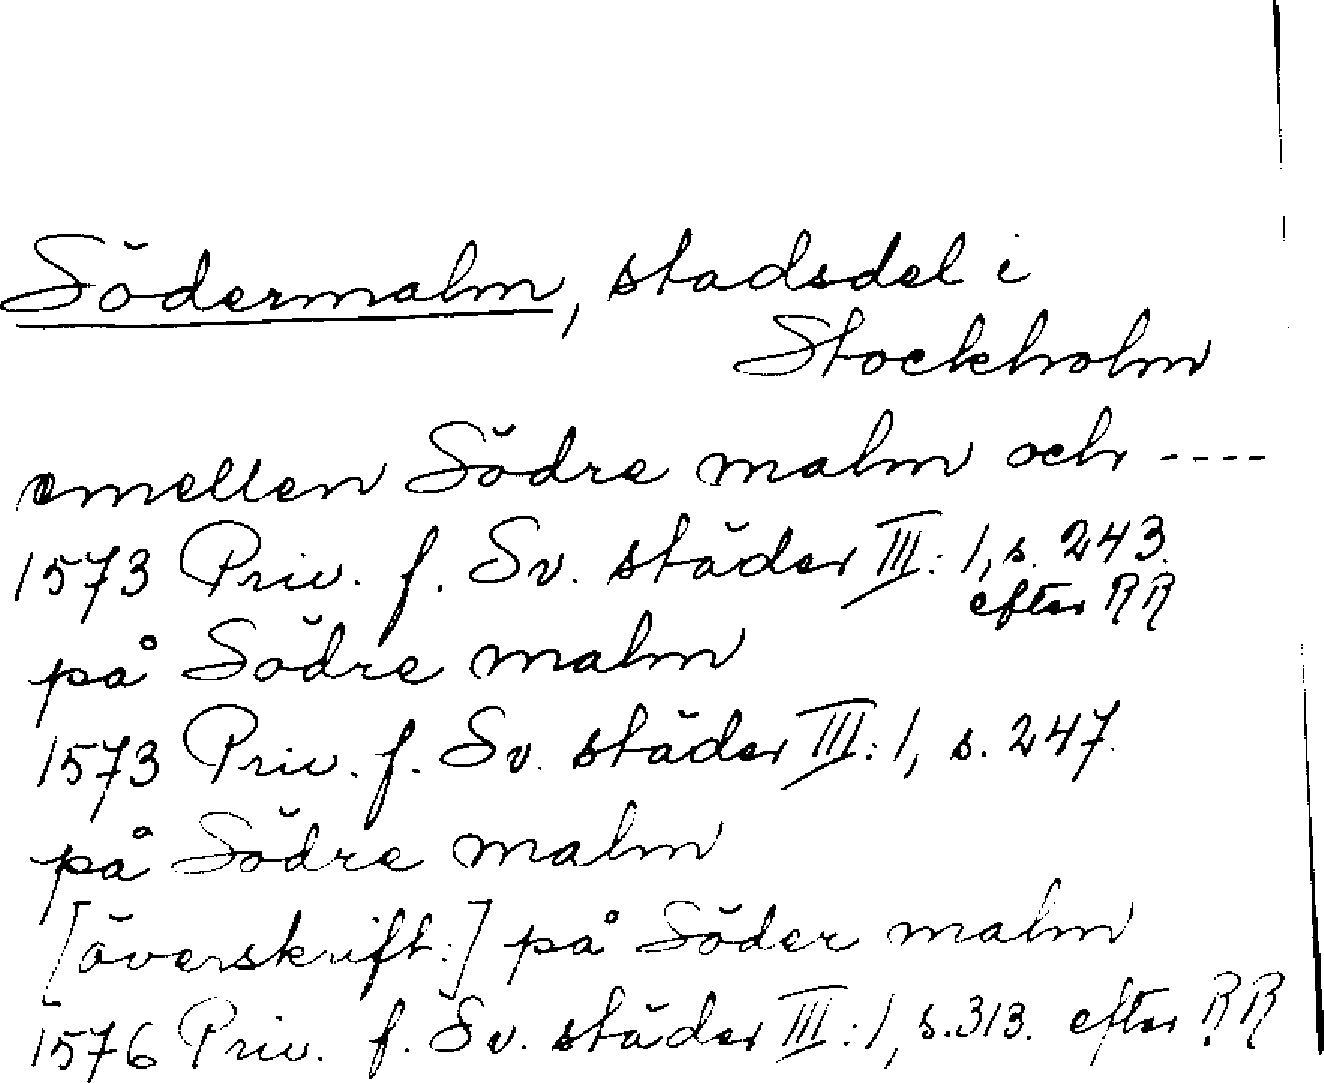 Södermalm, stadsdel i
Stockholm
emellen Södre malm och ----
1573 Priv. f. Sv. städer III: 1, s. 243.
efter RR
på Södre malm
1573 Priv. f. Sv. städer III: 1, s. 247.
på Södre malm
[överskrift:] på Söder malm
1576 Priv. f. Sv. städer III: 1, s. 313. efter RR